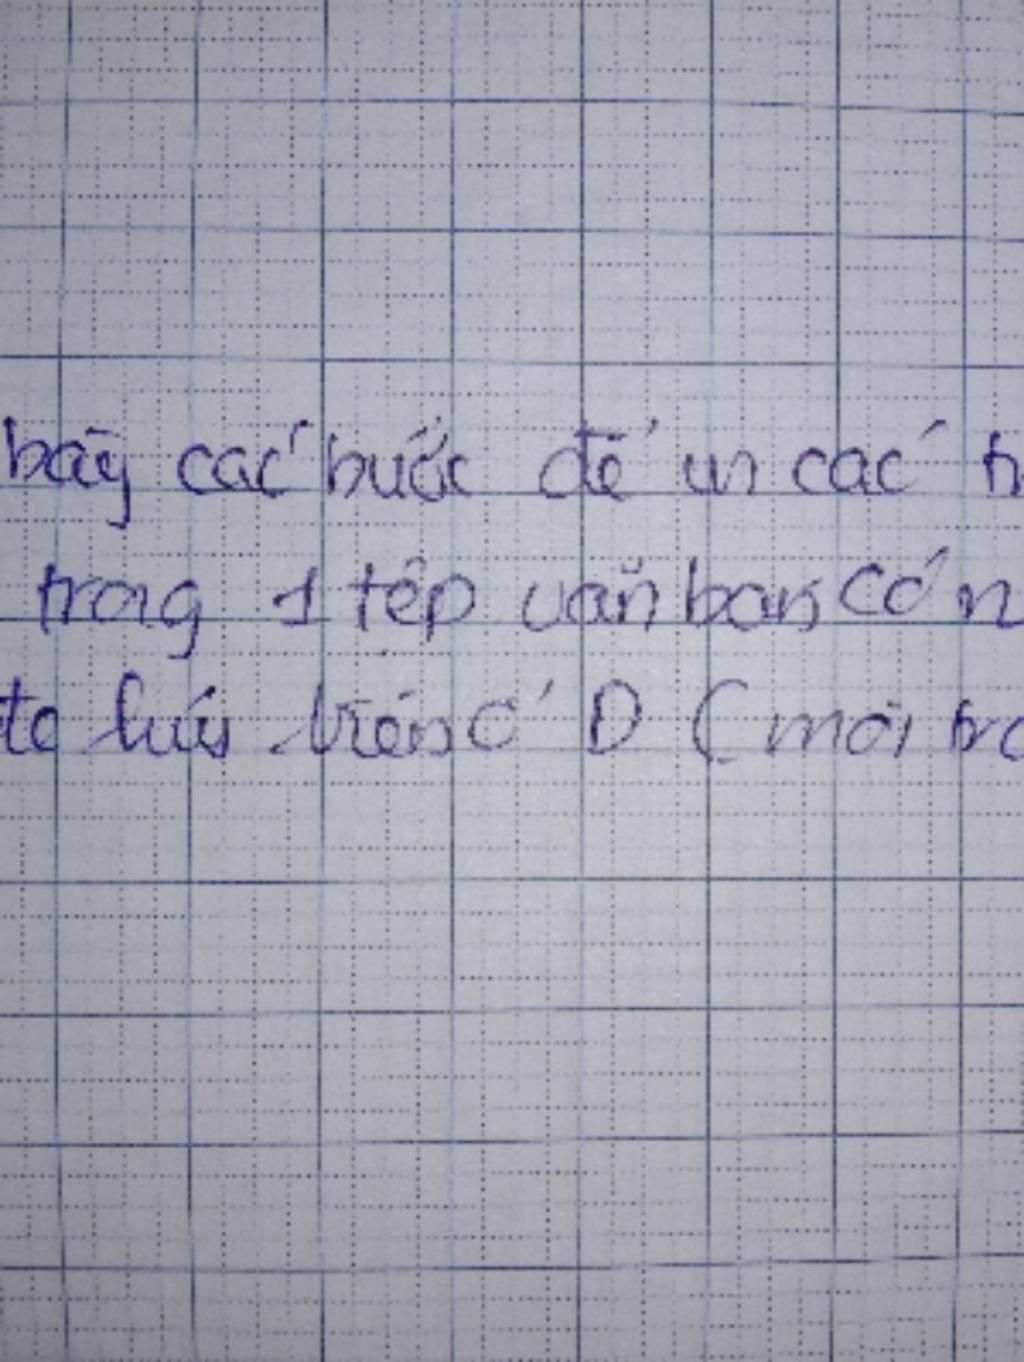 bày các bước để in các tr
trong 1 tệp văn bản có n
te lưu trên ổ D (mỗi tra